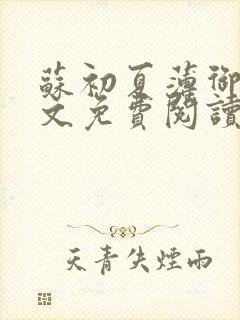 蘇初夏薄御
文免費閱讀
天青失煙雨